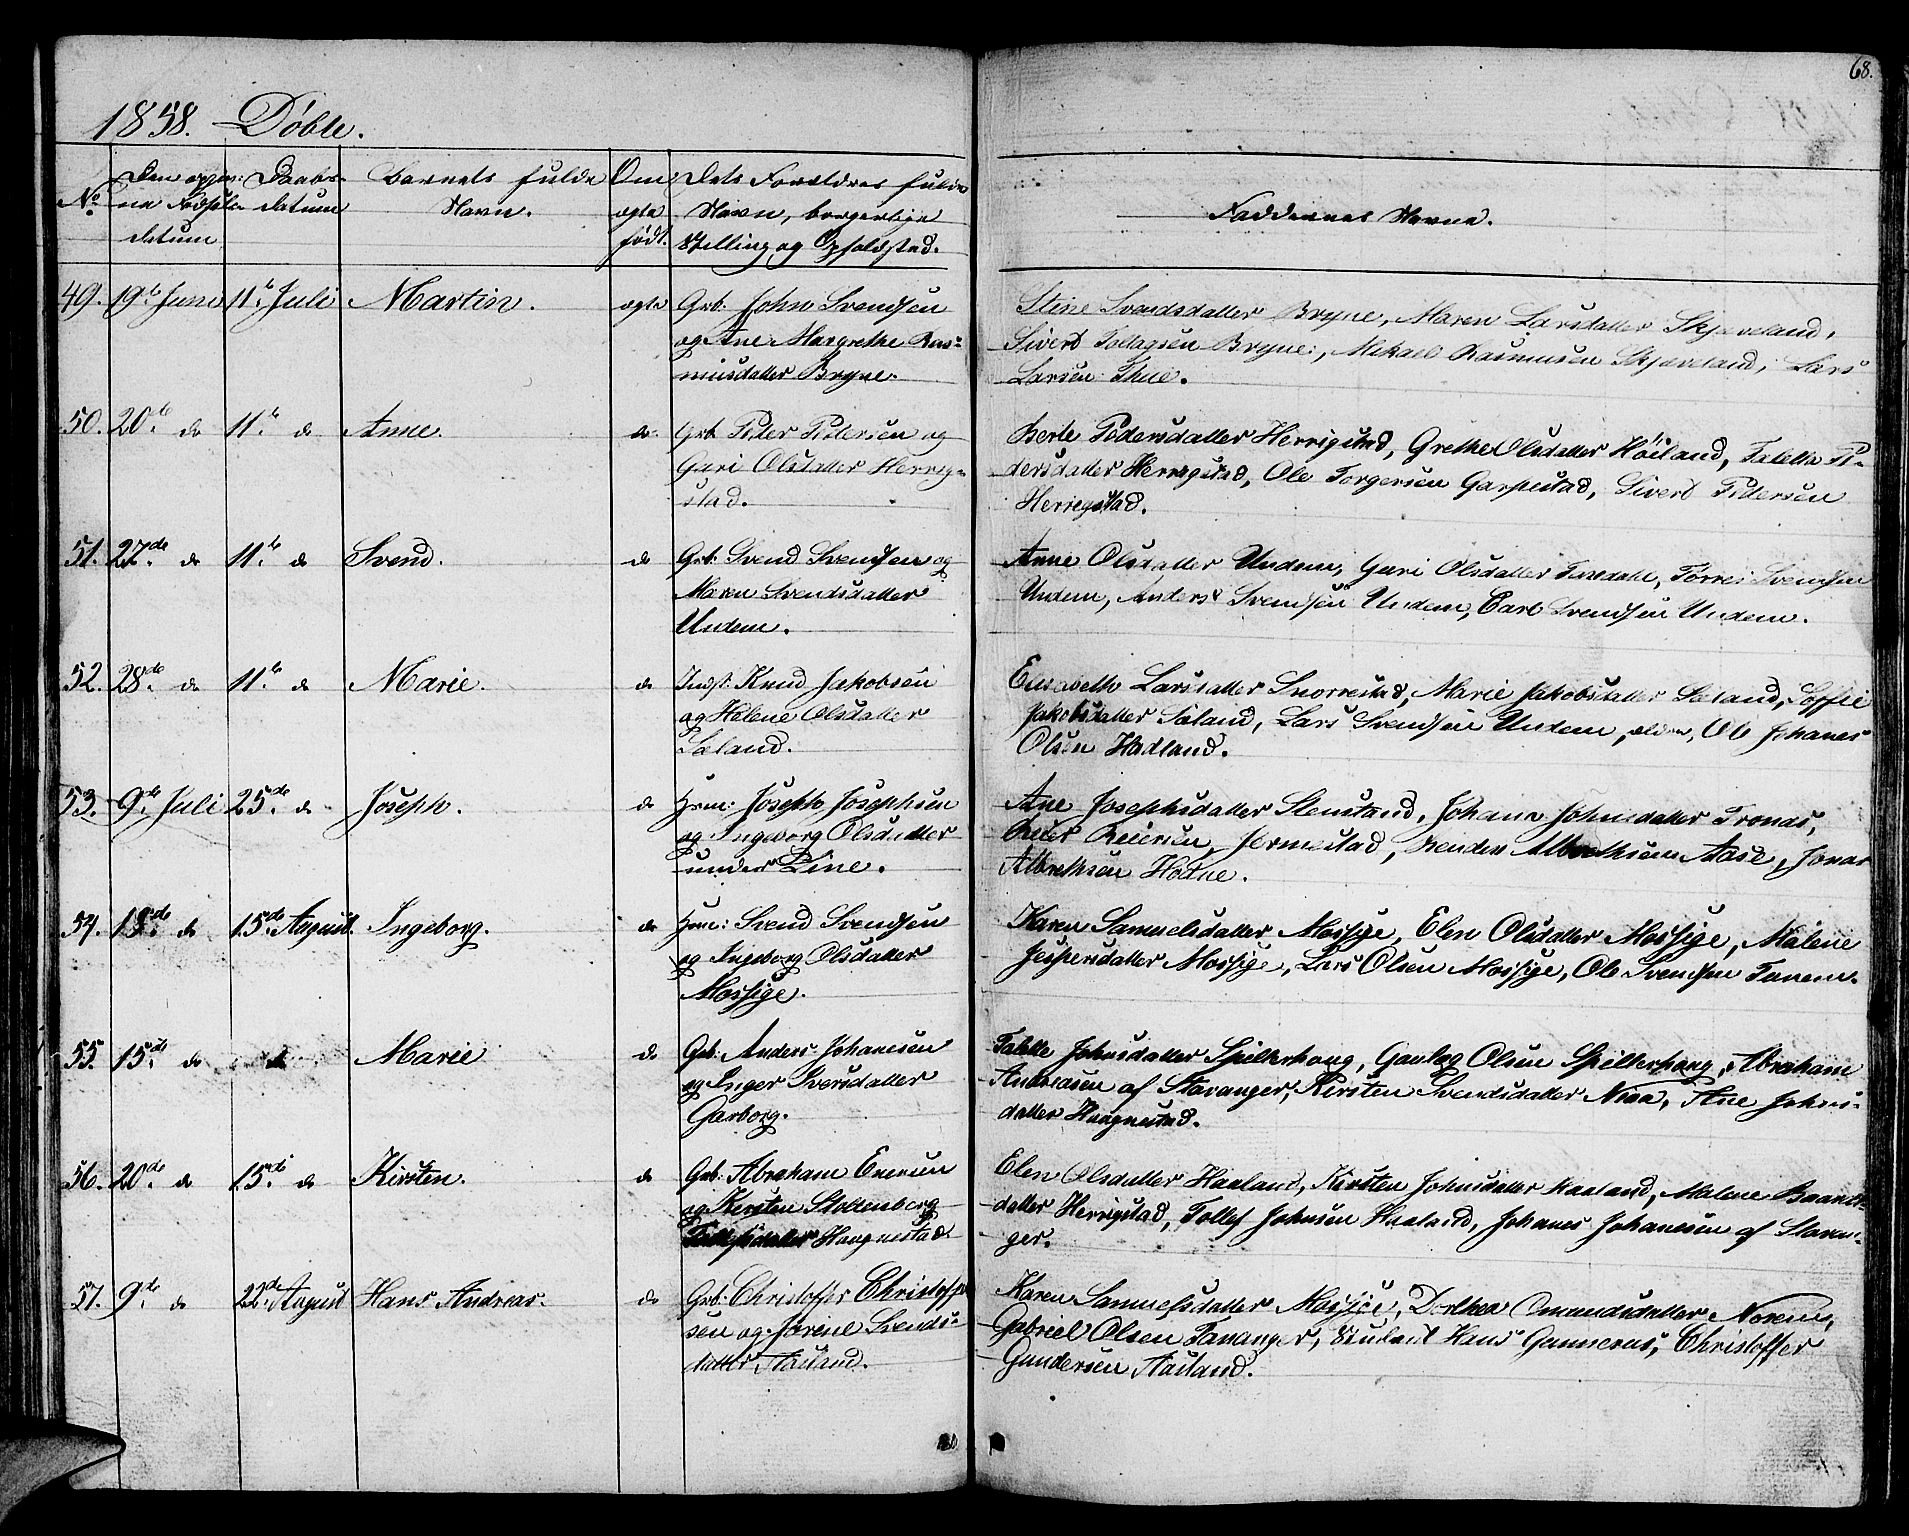 68.
1858. Döbte.
No. Den opgiv: ne Födsels datum Daabs- datum Barnets fulde Navn. Om ægte født. Dets Forældres fulde Navn, borgerlige Stilling og Opholdsted. Faddernes Navne.
49. 19de Juni 11te Juli Martin. ægte Grb. John Svendsen
og Ane Margrethe Ras-
musdatter Bryne.
Stine Svendsdatter Bryne, Maren Larsdatter Skjæveland,
Siverd Tollagsen Bryne, Mikael Rasmusen Skjæveland, Lars
Larsen Thue.
50. 20de do 11te do Anne. do Grb Peder Pedersen og
Guri Olsdatter Herrig-
stad.
Berte Pedersdatter Herrigstad, Grethe Olsdatter Höiland, Talette Pe-
dersdatter Herregstad, Ole Torgersen Garpestad, Siverd Pedersen
Herregstad.
51. 27de do 11te do Svend. do Grb: Svend Svendsen og
Maren Svendsdatter
Undem.
Anne Olsdatter Undem, Guri Olsdatter Tarldahl, Torres Svendsen
Undem, Anders Svendsen Undem, Carl Svendsen Undem.
52. 28de do 11te do Marie. do Indst. Knud Jakobsen
og Helene Olsdatter
Sæland.
Elisabeth Larsdatter Snorrestad, Marie Jakobsdatter Sæland, Soffie
Jakobsdatter Sæland, Lars Svendsen Undem, Ole Johanes
Olsen Hadland.
53. 9de Juli 25de do Joseph. do Hrm: Joseph Josephsen
og Ingeborg Olsdatter
under Line.
Ane Josephsdatter Stenstand, Johane Johnsdatter Tronæs,
Reier Reiersen Jermestad, Albrethsen Aase, Jonas
Albrethsen Hodne.
54. 13de do 15de August. Ingeborg. do Hrm: Svend Svendsen
og Ingeborg Olsdatter
Mossige.
Karen Samuelsdatter Mossige, Elen Olsdatter Mossige, Malene
Jespersdatter Mossige, Lars Olsen Mossige, Ole Svendsen Tanem.
55. 15de do do Marie do Grb: Anders Johanesen
og Inger Iversdatter
Garborg.
Talette Johnsdatter Spilterhoug, Gaulag Olsen Spilterhoug, Abraham
Andreasen af Stavanger, Kirsten Svendsdatter Niaa, Ane Johns-
datter Haugnestad.
56. 20de do 15de do Kirsten. do Grb: Abraham Enersen
og Kirsten Stoltenberg
Tollefsdatter Haugnestad
Elen Olsdatter Haaland, Kirsten Johnsdatter Haaland, Malene Baards-
datter Herrigstad, Tollef Johnsen Haaland, Johanes Johanesen af Stavan-
ger.
57. 9de do 22de August Hans Andreas. do Grb: Christoffer Christoffer
sen og Jorine Svends-
datter Höiland.
Karen Samuelsdatter Mossige, Dorthea Omundsdatter Norem,
Gabriel Olsen Tananger, Student Hans Gunnerus, Christoffer
Gundersen Höiland.